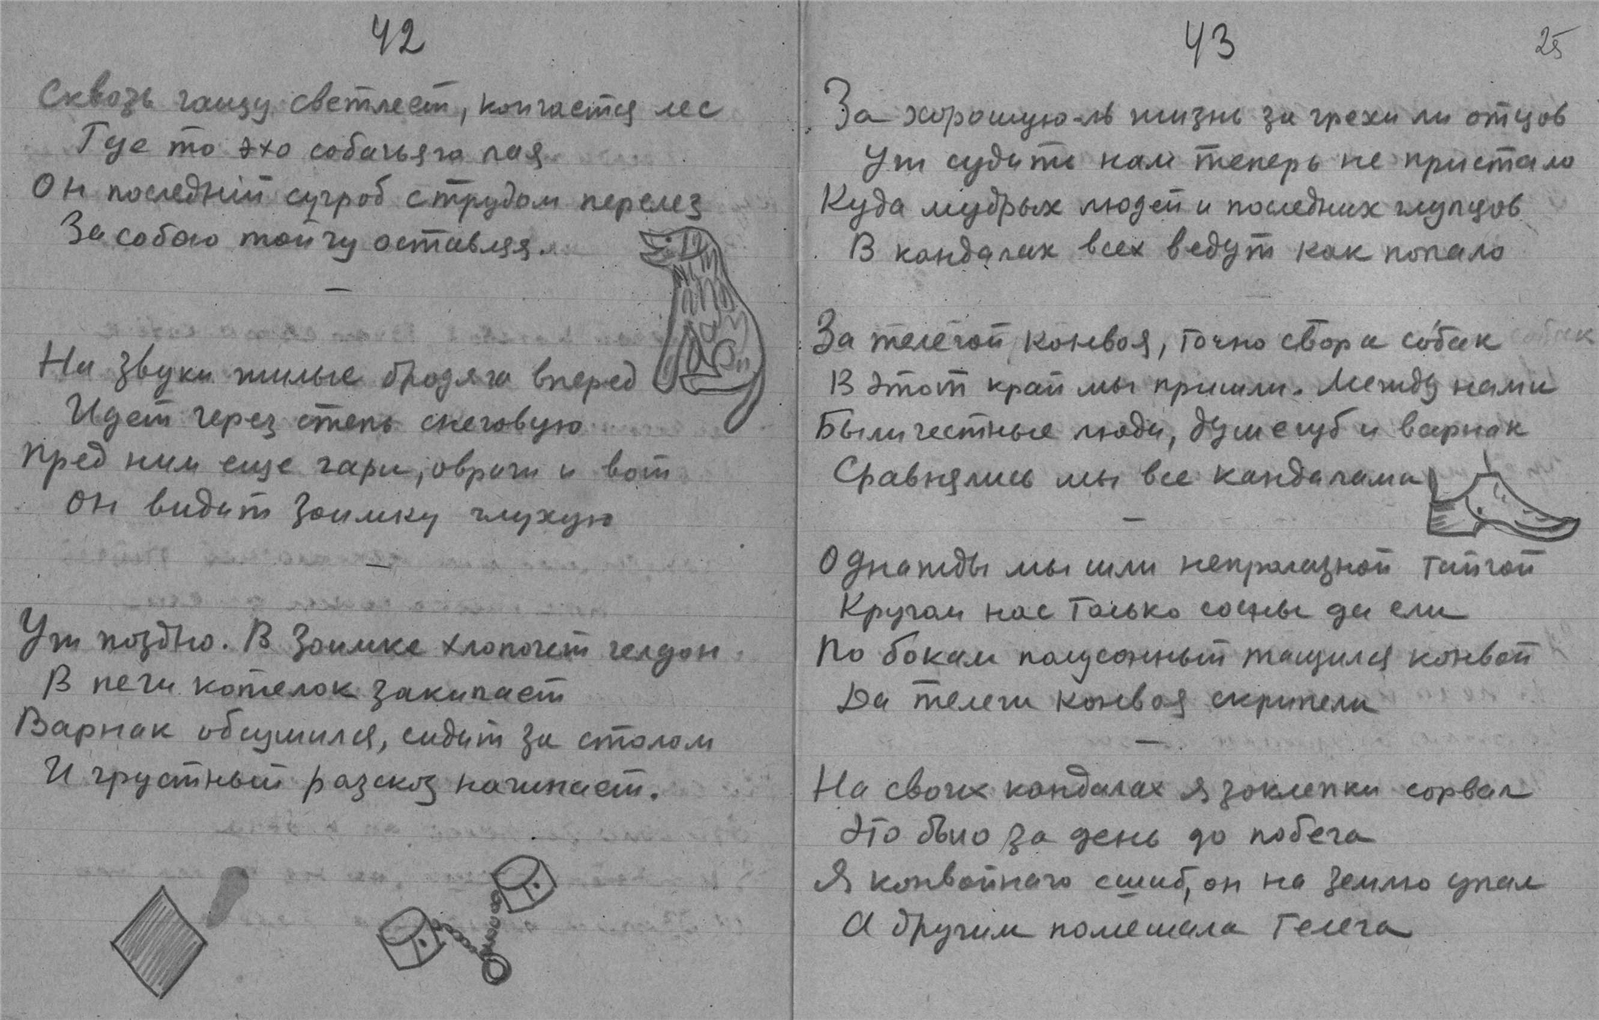 42
Сквозь чащу светлеет, кончается лес
Где то эхо собачьяго лая
Он последнiй сугроб с трудом перелез
За собою тайгу оставляя.
На звуки жилые бродяга вперед
Идет через степь снеговую
Пред ним еще гари, овраги и вот
Он видит Заимку глухую
Уж поздно. В Заимке хлопочет челдон
В печи котелок закипает
Варнак обсушился, сидит за столом
И грустный разсказ начинает.
43
25
За хорошую-ль жизнь за грехи ли отцов
Уж судить нам теперь не пристало
Куда мудрых людей и последних глупцов
В кандалах всех ведут как попало
За телегой конвоя, точно свора собак
В этот край мы пришли. Между нами
Были честные люди, душегуб и варнак
Сравнялись мы все кандалами
Однажды мы шли непролазной тайгой
Кругом нас только сосны да ели
По бокам полусонный тащился конвой
Да телеги конвоя скрипели
На своих кандалах я заклепки сорвал
Это было за день до побега
Я конвойнаго сшиб, он на землю упал
А другим помешала телега